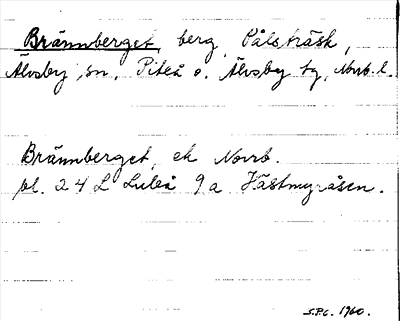 Brännberget, berg, Pålsträsk,
Älvsby sn, Piteå o. Älvsby tg, Norrb. l.
Brännberget, ek Norrb.
bl. 24 L Luleå 9a Hästmyråsen.
S.P.C. 1960.